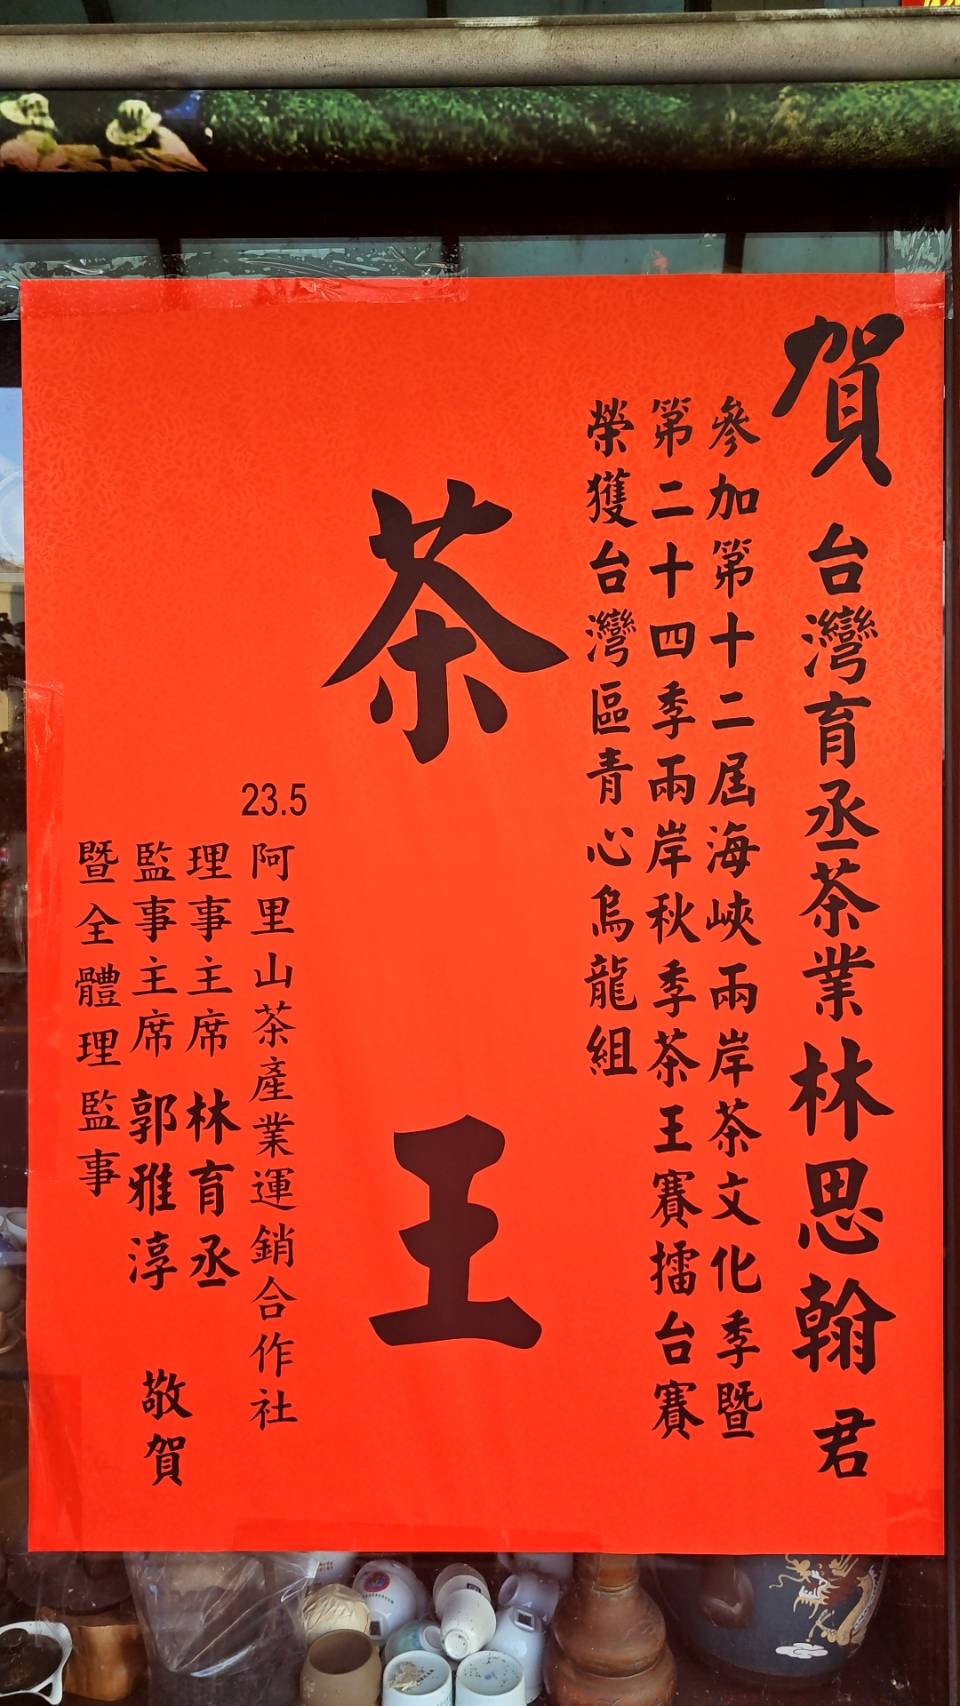 賀 台灣育丞茶業林思翰君
參加第十二屆海峽兩岸茶文化季暨
第二十四季兩岸秋季茶王賽擂台賽
榮獲台灣區青心烏龍組
茶王
23.5
阿里山茶產業運銷合作社
理事主席 林育丞
監事主席 郭雅淳
暨全體理監事
敬賀